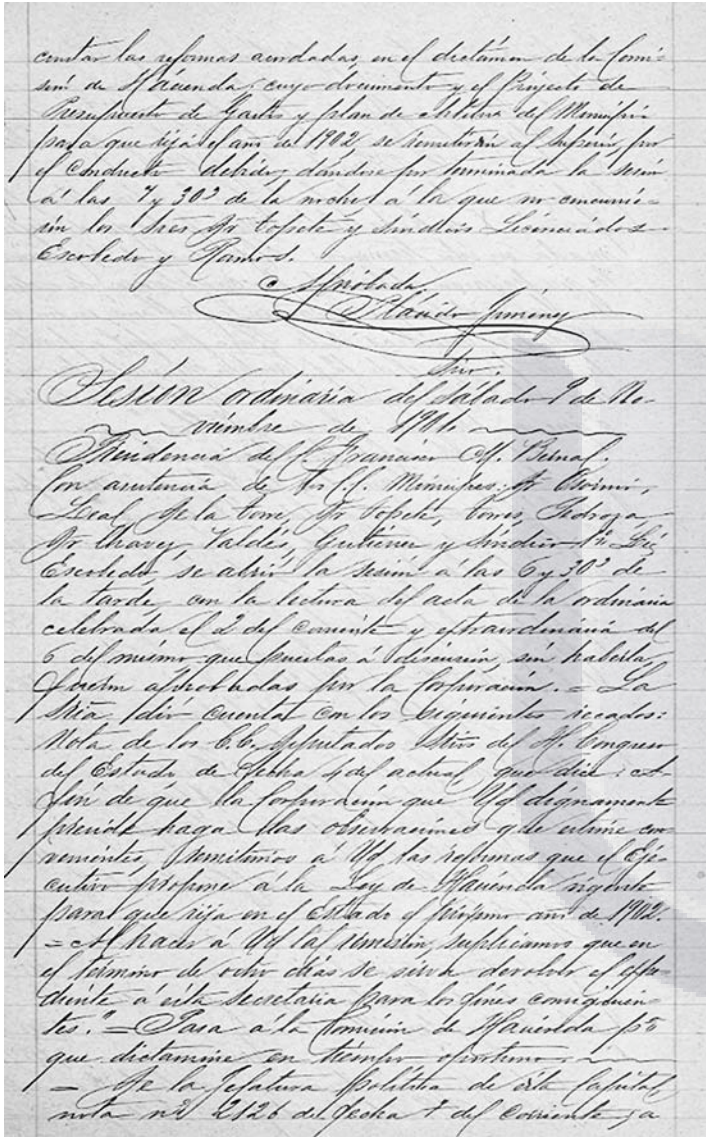 constar las reformas acordadas, en el dictámen de la Comi-
sión de Hacienda; cuyo documento y el Proyecto de
Presupuesto de Gastos y plan de arbitrios del Municipio
para que rija el año de 1902, se remitirán al Superior, por
el conducto debido, dándose por terminada la sesión
á las 7 y 30' de la noche á la que no concurrie-
rón los Sres Dr Topete y Síndicos Licenciados
Escobedo y Ramos.
Aprobada.
Plácido Jiménez
Srio.
Sesión ordinaria del sábado 9 de No-
viembre de 1901.
Presidencia del C. Francisco M. Bernal.
Con asistencia de los C.C. Munícipes: Dr
Leal, De la torre, Dr Topete, torres, Pedroza
Dr Chavez, Valdés, Gutiérrez y Síndico 1º Lic.
Escobedo, se abrió la sesión á las 6 y 30' de
la tarde con la lectura del acta de la ordinaria
celebrada el 2 del corriente y extraordinaria del
6 del mismo que puestas á discusión, sin haberla,
fuerón aprobadas por la Corporación. = La
Sría. dió cuenta con los siguientes recados:
Nota de los C.C. Diputados Srios del H. Congreso
del Estado de fecha 4 del actual que dice: A
fin de que la Corporación que Ud dignamente
preside haga las observaciones que estime con
venientes, remitimos á Ud las reformas que el Eje-
cutivo propone á la Ley de Hacienda vigente
para que rija en el Estado el próximo año de 1902.
= Al hacer á Ud la remisión, suplicamos que en
el término de ocho días se sirva devolver el expe-
diente á esta Secretaría para los fines consiguien-
tes." = Pasa á la Comisión de Hacienda pª
que dictamine en tiempo oportuno.
= De la Jefatura Política de esta Capital
nota nº 2126 de fecha del corriente, á